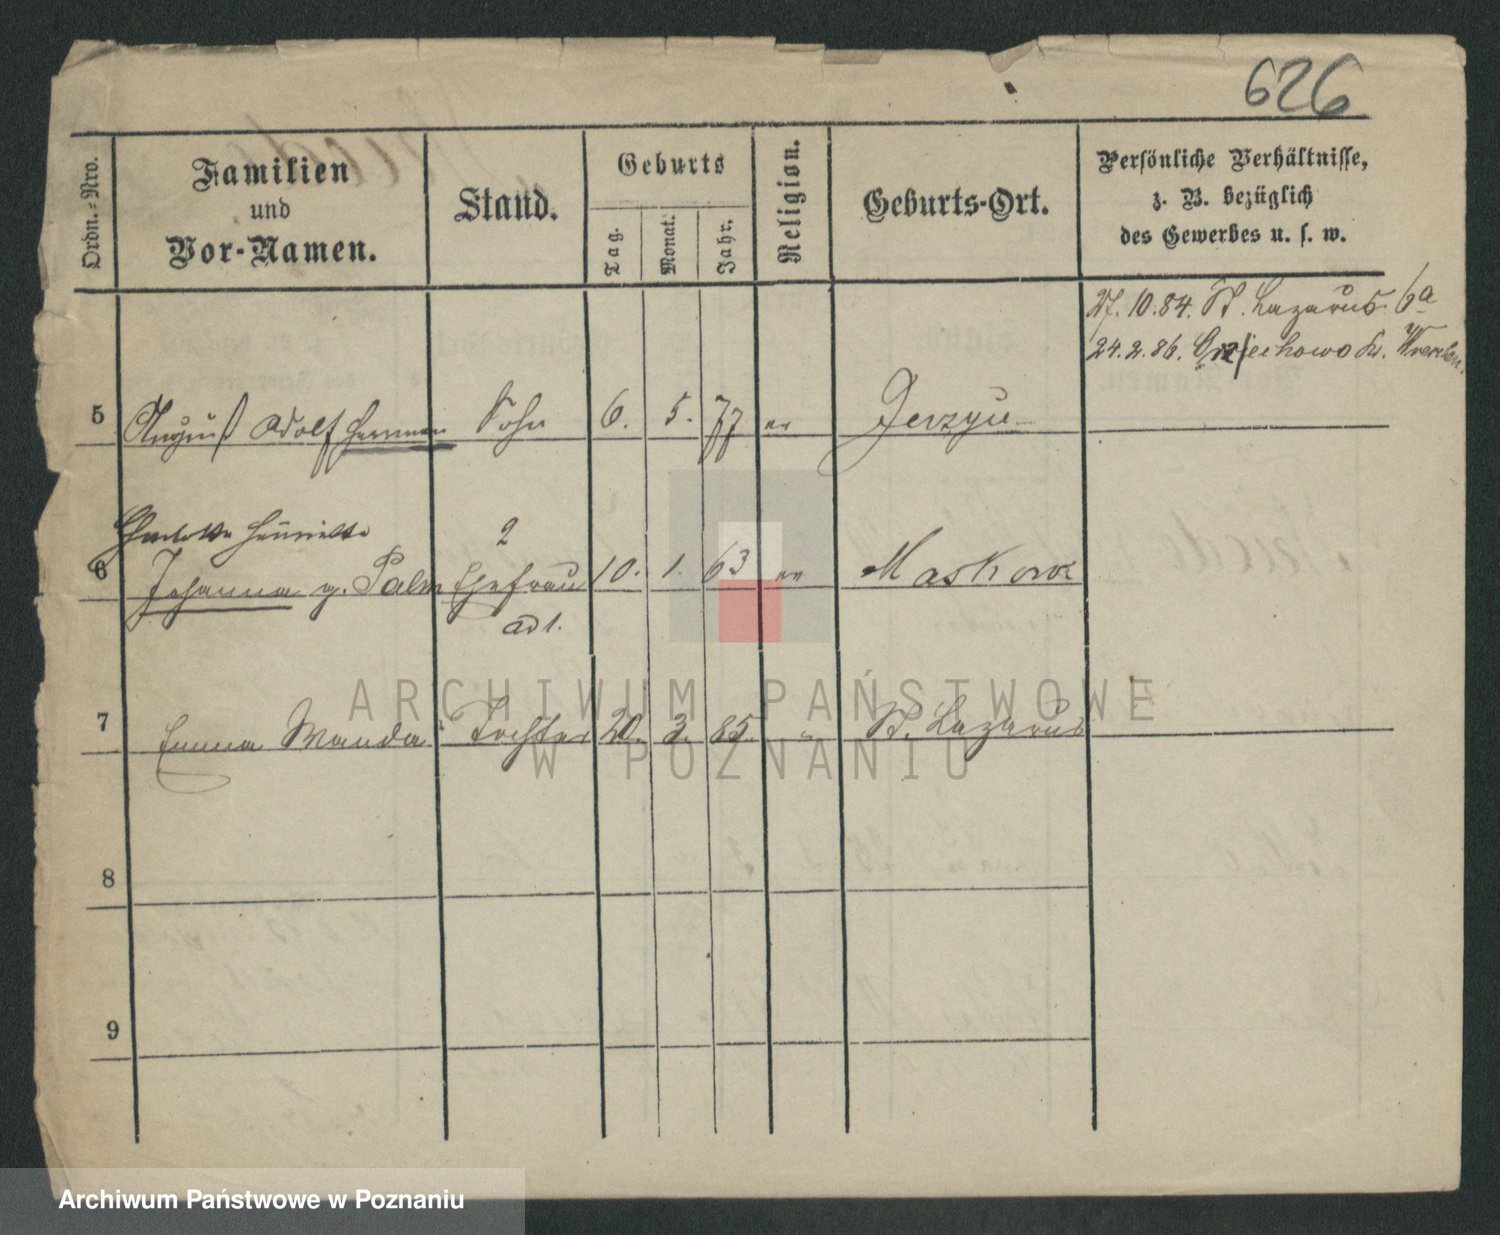 626
Ordn.-Nro.
Familien
und
Vor-Namen.
Stand.
Geburts
Tag.
Monat.
Jahr.
Religion.
Geburts-Ort.
Persönliche Verhältnisse,
z. B. bezüglich
des Gewerbes u. s. w.
27. 10. 84. St. Lazarus 6a
24. 2. 86. Grzechowo Kr. Wreschen.
5 August Adolf Herman Sohn 6. 5. 77 ev Jerzyn
Charlotte Henriette 2
6 Johanna g. Palm Ehefrau 10. 1. 63 ev
ad 1.
7 Emma Wanda Tochter 20. 3. 85. " St. Lazarus
8
9
ARCHIWUM PAŃSTWOWE
W POZNANIU
Archiwum Państwowe w Poznaniu